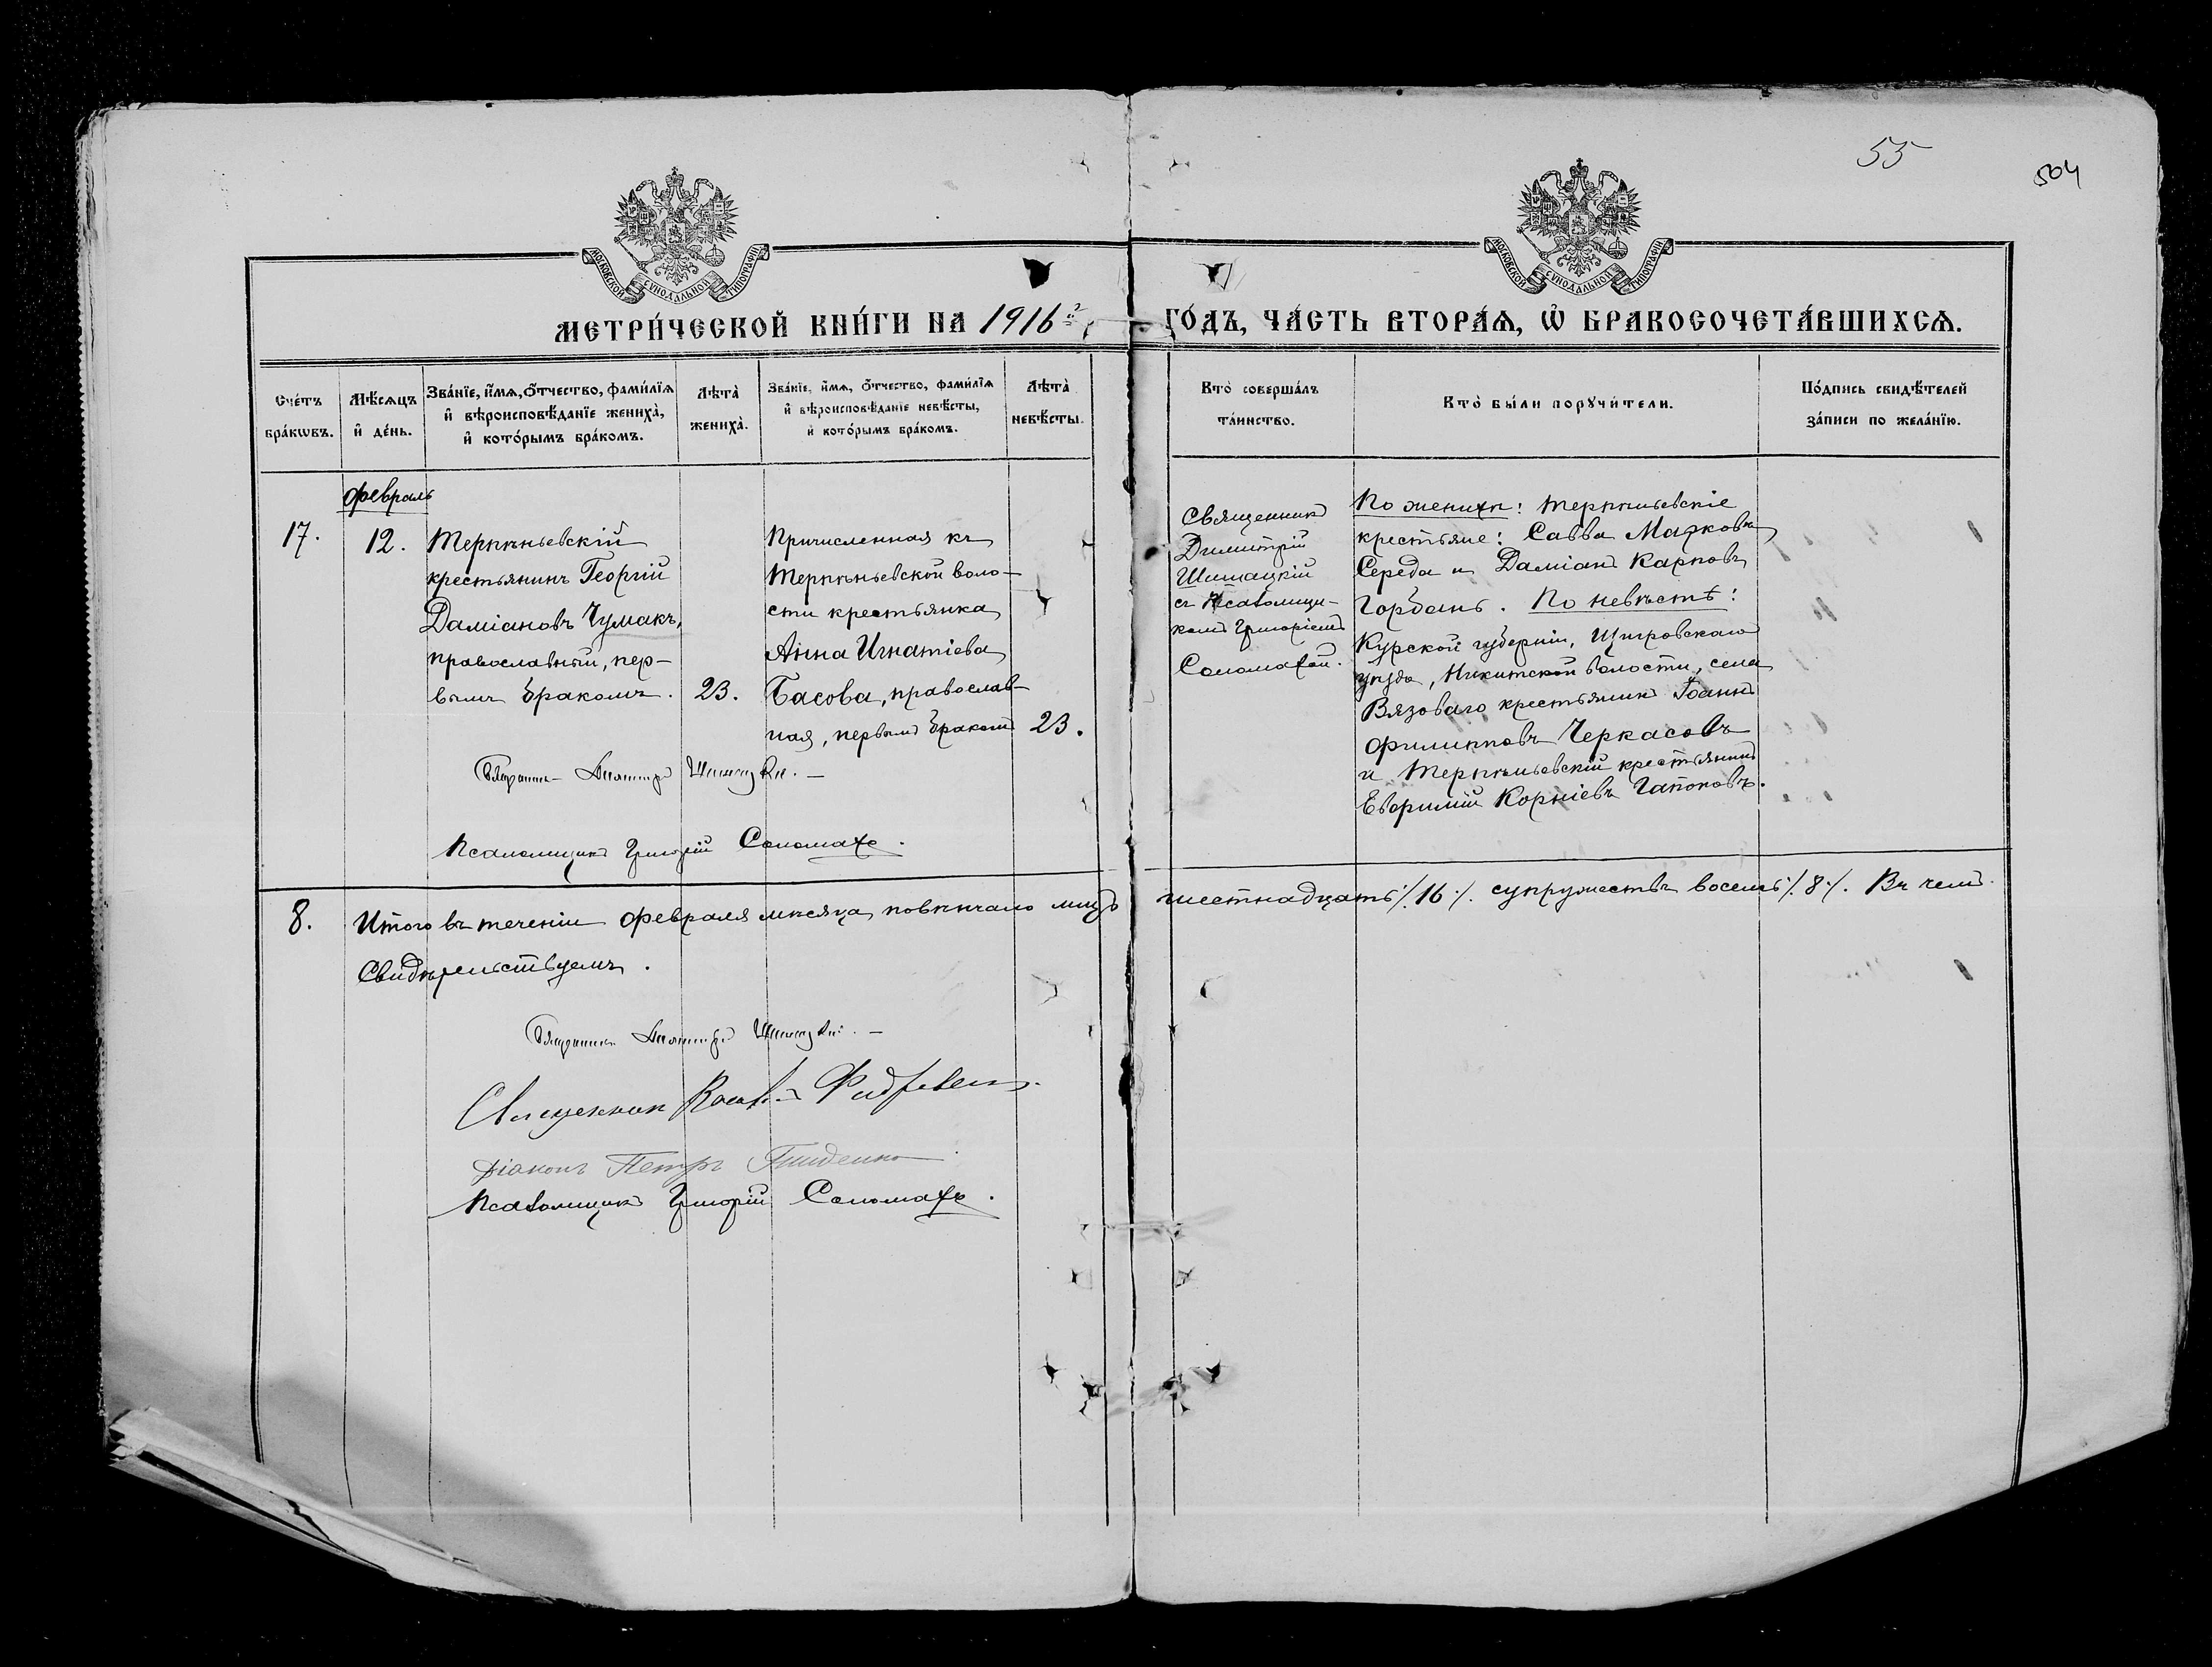 55
504
МОСКОВСКОЙ СѴНОДАЛЬНОЙ ТИПОГРАФІИ
МОСКОВСКОЙ СѴНОДАЛЬНОЙ ТИПОГРАФІИ
МЕТРИ́ЧЕСКОЙ КНИ́ГИ НА 1916 й
ГО́ДЪ, ЧА́СТЬ ВТОРА́Ѧ, Ѡ҆ БРАКОСОЧЕТА́ВШИХСѦ.
Сче́тъ
бра́кѡвъ.
Мѣ́сѧцъ
и҆ де́нь.
Зва́нїе, и҆́мѧ, ѻ҆́тчество, фами́лїѧ
и҆ вѣроисповѣ́данїе жениха̀,
и҆ кото́рымъ бра́комъ.
Лѣта̀
жениха̀.
Зва́нїе, и҆́мѧ, ѻ҆́тчество, фами́лїѧ
и҆ вѣроисповѣ́данїе невѣ́сты,
и҆ кото́рымъ бра́комъ.
Лѣта̀
невѣ́сты.
Кто̀ соверша́лъ
та́инство.
Кто̀ бы́ли порꙋчи́тели.
По́дпись свидѣ́телей
за́писи по жела́нїю.
Февраль
17.
12.
Терпѣньевскій
крестьянинъ Георгій
Даміановъ Чумакъ,
православный, пер-
вымъ бракомъ.
23.
Причисленная къ
Терпѣньевской воло-
сти крестьянка
Анна Игнатіева
Басова, православ-
ная, первымъ бракомъ
23.
Священникъ
Димитрій
Шишацкій
съ псаломщи-
комъ Григоріемъ
Соломахой.
По женихѣ: Терпѣньевскіе
крестьяне: Савва
Середа и Даміанъ Карповъ
Горбань. По невѣстѣ:
Курской губерніи, Щигровскаго
уѣзда, Никитской волости, села
Вязоваго крестьянинъ Іоаннъ
Филипповъ Черкасовъ
и Терпѣньевскій крестьянинъ
Евфимій Корніевъ Гапоновъ.
Священникъ Димитрій Шишацкій. —
Псаломщикъ Григорій Соломаха.
8.
Итого въ теченіи февраля мѣсяца повѣнчано лицъ шестнадцать /.16./. супружествъ восемь /.8./. Въ чемъ
Свидѣтельствуемъ.
Священникъ Димитрій Шишацкій. —
Священникъ
Діаконъ Петръ
Псаломщикъ Григорій Соломаха.